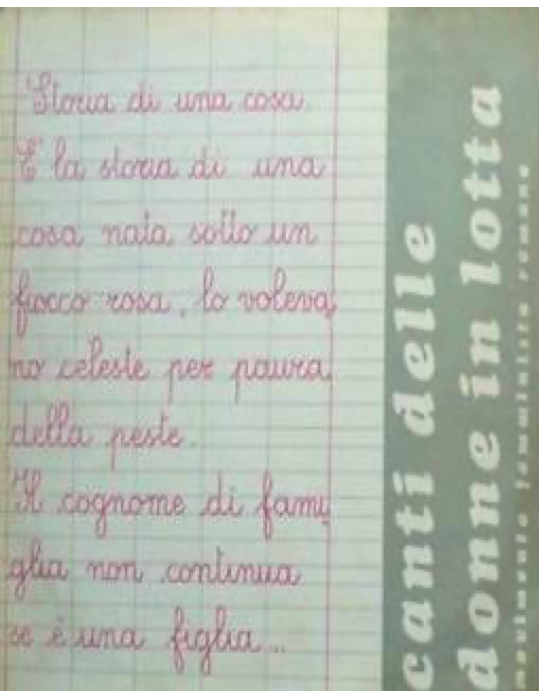 Storia di una cosa.
È la storia di una
cosa nata sotto un
fiocco rosa, lo voleva
no celeste per paura
della peste.
Il cognome di fami
glia non continua
se è una figlia...
canti delle
donne in lotta
movimento femminista romano